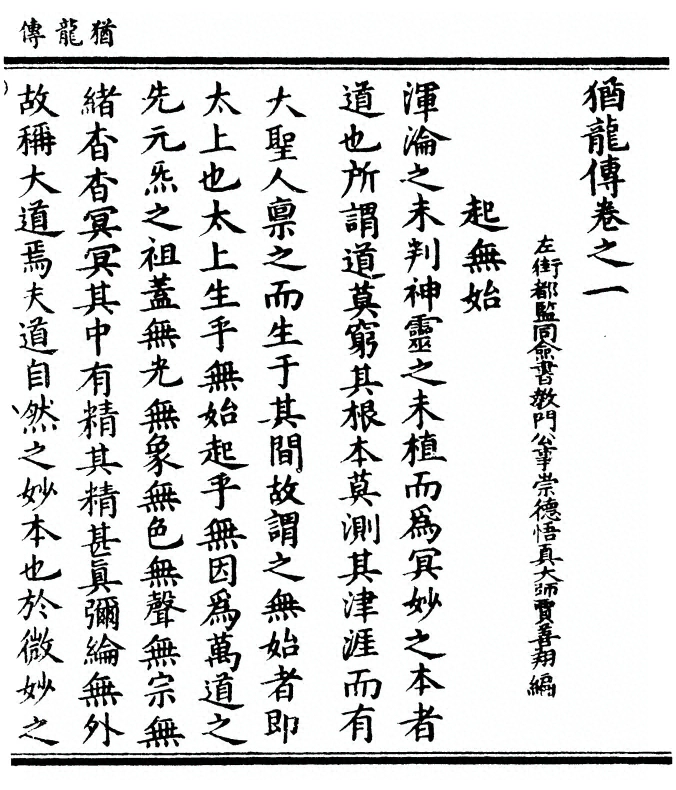 猶龍傳
猶龍傳卷之一
左街都監同僉書教門公事崇德悟真大師賈善翔編
起無始
渾淪之未判神靈之未植而爲冥妙之本者
道也所謂道莫窮其根本莫測其津涯而有
大聖人稟之而生于其間故謂之無始者即
太上也太上生乎無始起乎無因爲萬道之
先元炁之祖蓋無光無象無色無聲無宗無
緒杳杳冥冥其中有精其精甚眞彌綸無外
故稱大道焉夫道自然之妙本也於微妙之